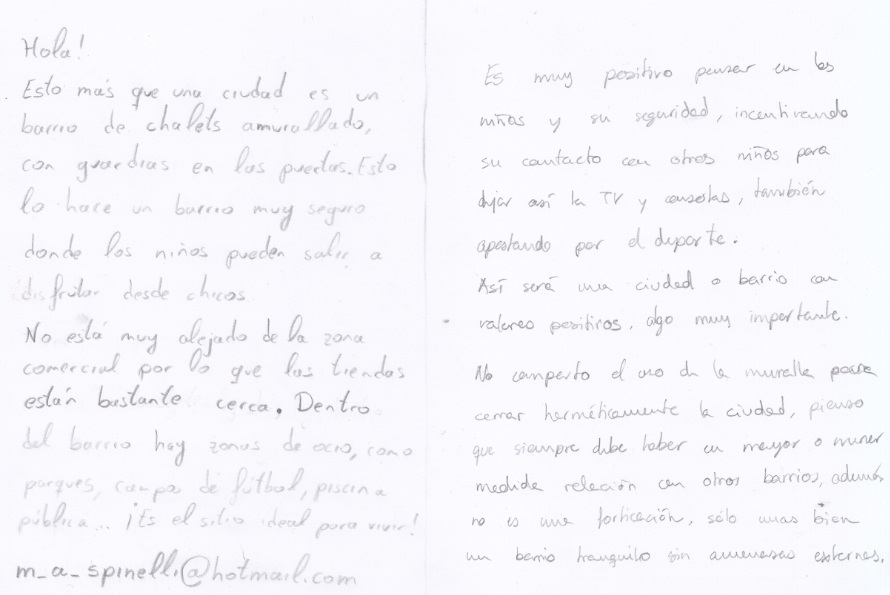 Hola!
Esto más que una ciudad es un
barrio de chalets amurallado,
con guardias en las puertas. Esto
lo hace un barrio muy seguro
donde los niños pueden salir a
disfrutar desde chicos
No está muy alejado de la zona
comercial por lo que las tiendas
están bastante cerca. Dentro
del barrio hay zonas de ocio, como
parques, campos de fútbol, piscina
pública... ¡Es el sitio ideal para vivir!
m_a_spinelli@hotmail.com
Es muy positivo pensar en los
niños y su seguridad, incentivando
su contacto con otros niños para
dejar así la TV y consolas, también
apostando por el deporte.
Así será una ciudad o barrio con
valores positivos, algo muy importante.
No comparto el uso de la muralla para
cerrar herméticamente la ciudad, pienso
que siempre debe haber en mayor o menor
medida relación con otros barrios, además
no es una forticación, sólo mas bien
un barrio tranquilo sin amenasas externas.